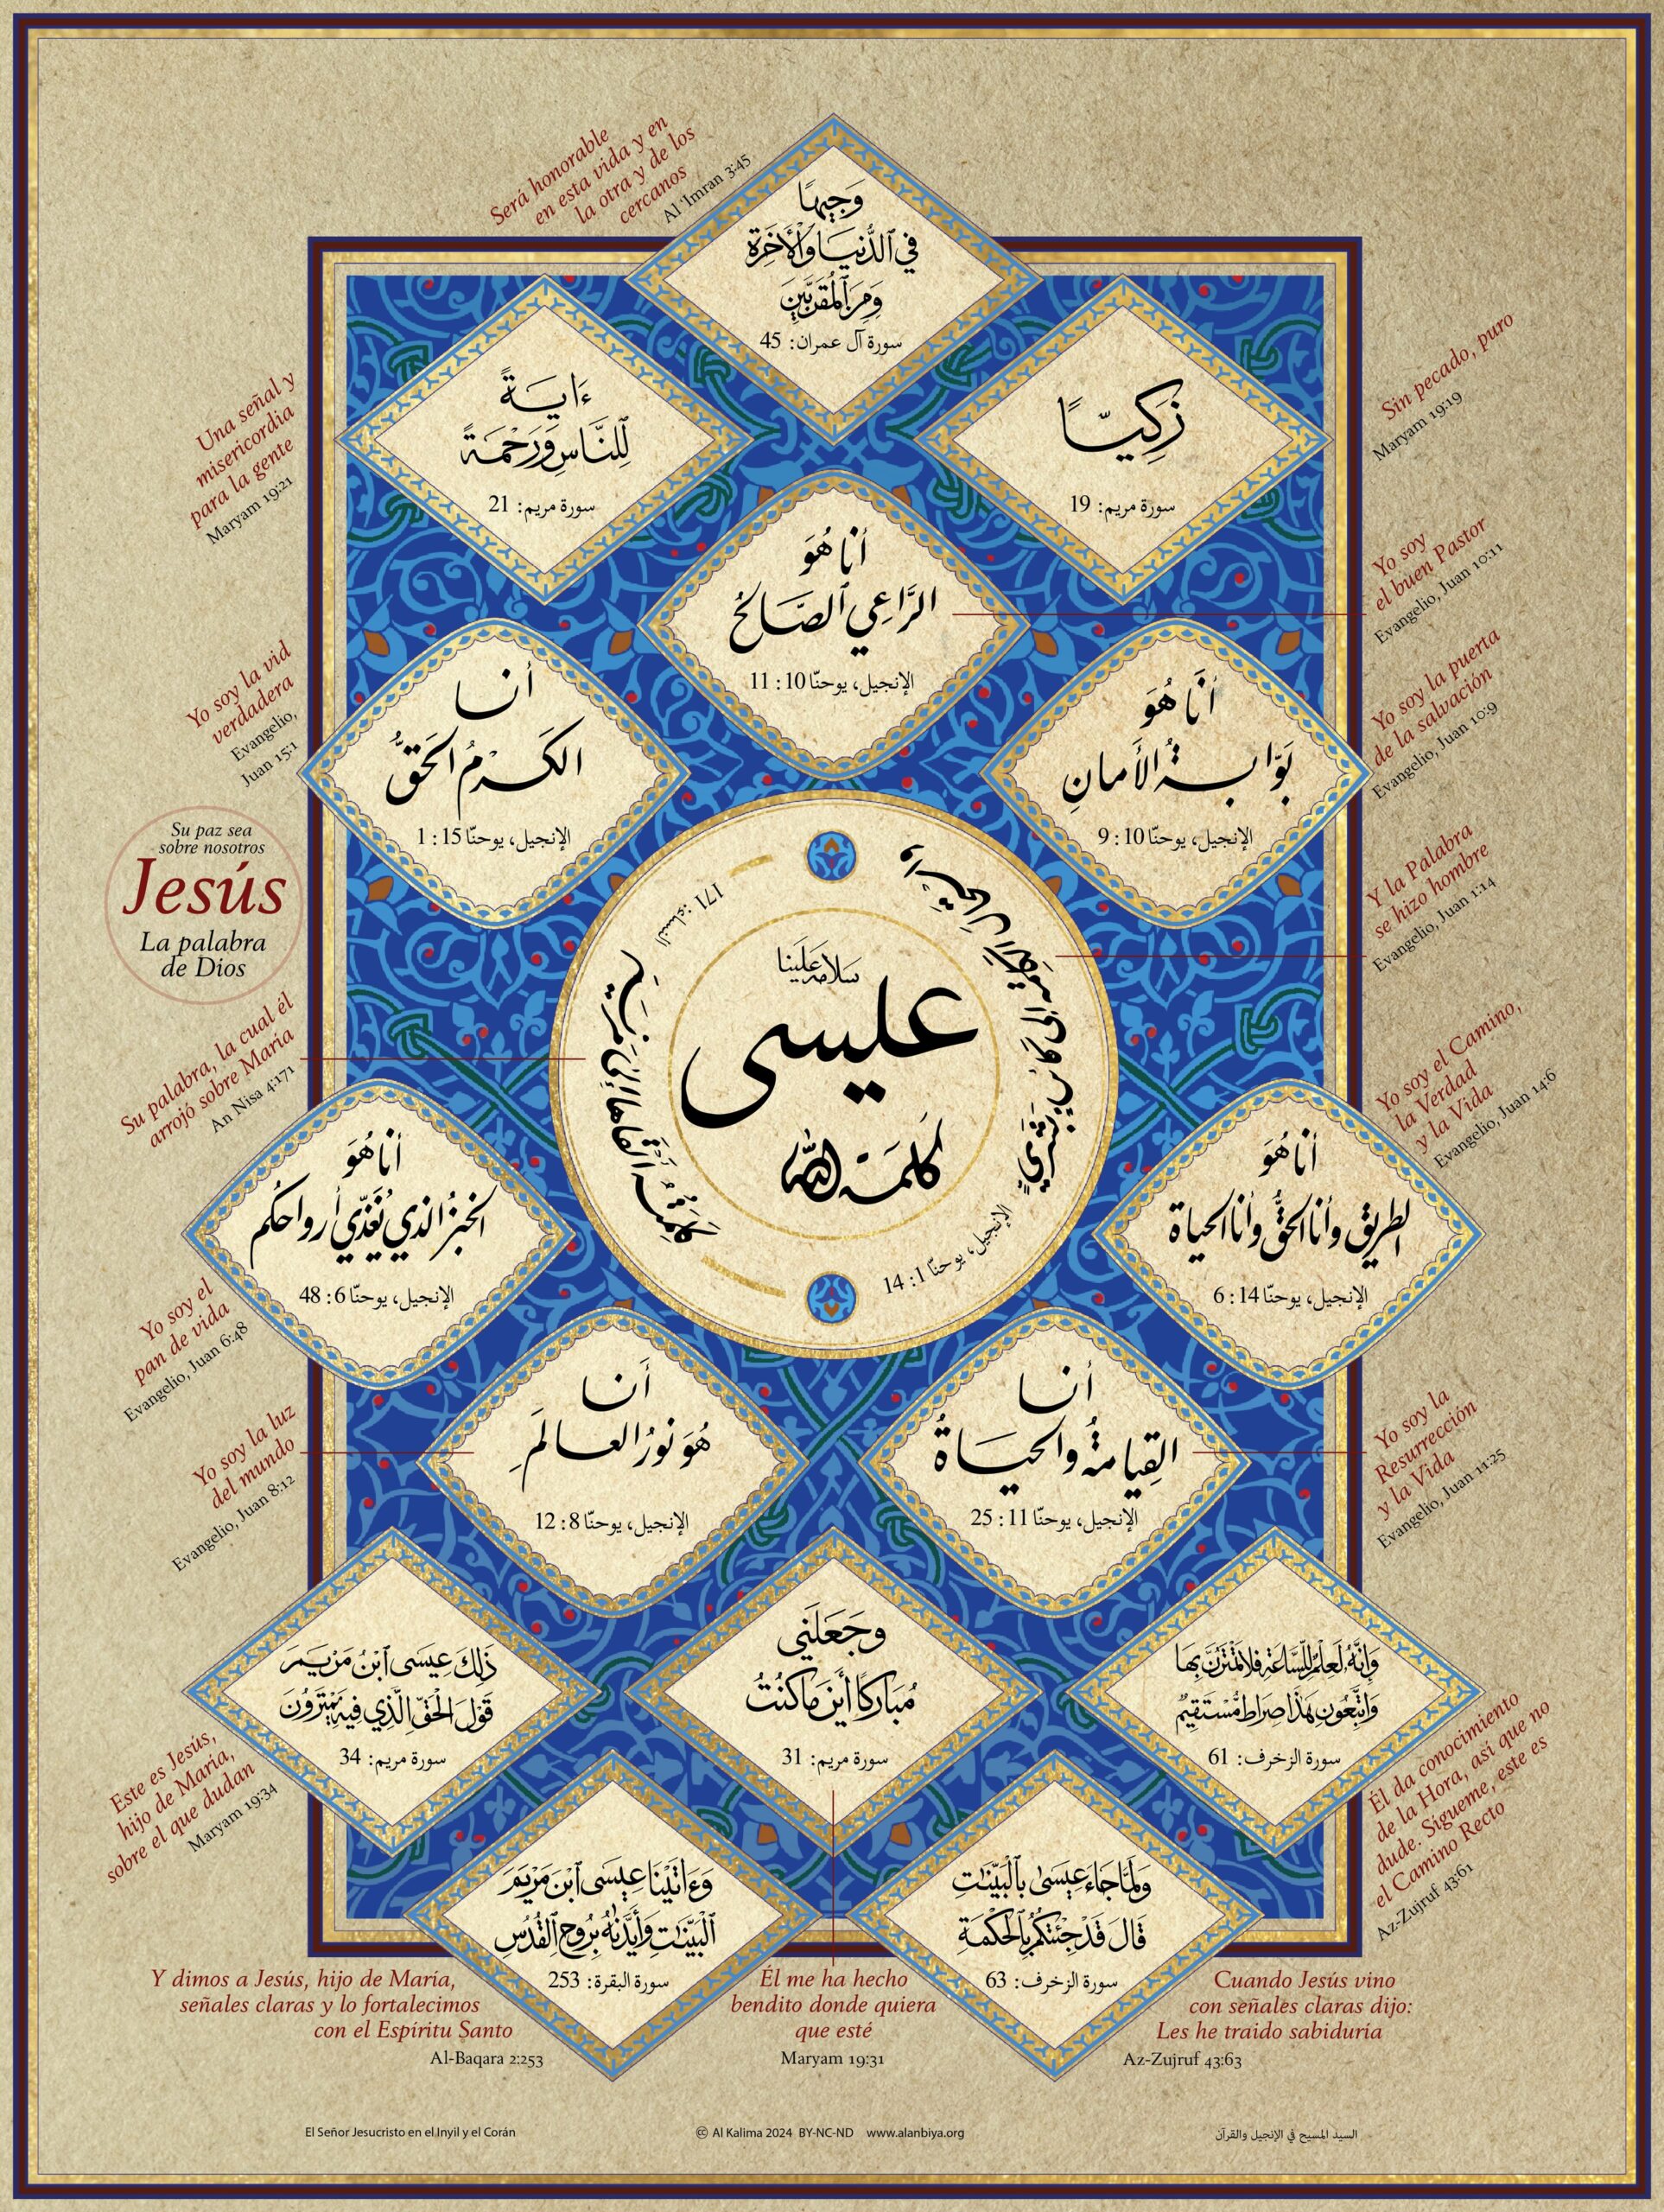 Será honorable
en esta vida y en
la otra y de los
cercanos
Al 'Imran 3:45
وَجِيهًا
فِي ٱلدُّنْيَا وَٱلْأَخِرَةِ
وَمِنَ ٱلْمُقَرَّبِينَ
سورة آل عمران: 45
Una señal y
misericordia
para la gente
Maryam 19:21
ءَايَةً
لِّلنَّاسِ وَرَحْمَةً
سورة مريم: 21
زَكِيًّا
سورة مريم: 19
Sin pecado, puro
Maryam 19:19
أنا هُوَ
الرَّاعِي ٱلصَّالِحُ
الإنجيل، يوحنّا 10: 11
Yo soy
el buen Pastor
Evangelio, Juan 10:11
Yo soy la vid
verdadera
Evangelio,
Juan 15:1
أنا
الكَرْمُ الحَقُّ
الإنجيل، يوحنّا 15: 1
أنَا هُوَ
بَوَّابةُ الأَمانِ
الإنجيل، يوحنّا 10: 9
Yo soy la puerta
de la salvación
Evangelio, Juan 10:9
Su paz sea
sobre nosotros
Jesús
La palabra
de Dios
النساء: 171
سلامه علينا
عليسى
كلمة الله
الإنجيل، يوحنّا 1: 14
Y la Palabra
se hizo hombre
Evangelio, Juan 1:14
Su palabra, la cual él
arrojó sobre María
An Nisa 4:171
Yo soy el Camino,
la Verdad
y la Vida
Evangelio, Juan 14:6
أنا هُوَ
الخبزُ الذي يُغَذّي أرواحكُم
الإنجيل، يوحنّا 6: 48
أنا هُوَ
الطريقُ وأنا الحقُّ وأنا الحياة
الإنجيل، يوحنّا 14: 6
Yo soy el
pan de vida
Evangelio, Juan 6:48
Yo soy la luz
del mundo
Evangelio, Juan 8:12
أنا
هُوَ نورُ العالَمِ
الإنجيل، يوحنّا 8: 12
أنا
القِيامةُ والحياةُ
الإنجيل، يوحنّا 11: 25
Yo soy la
Resurrección
y la Vida
Evangelio, Juan 11:25
ذَٰلِكَ عِيسَى ٱبْنُ مَرْيَمَ
قَوْلَ ٱلْحَقِّ ٱلَّذِي فِيهِ يَمْتَرُونَ
سورة مريم: 34
وَجَعَلَنِي
مُبَارَكًا أَيْنَ مَا كُنْتُ
سورة مريم: 31
وَإِنَّهُ لَعِلْمٌ لِّلسَّاعَةِ فَلَا تَمْتَرُنَّ بِهَا
وَاتَّبِعُونِ هَٰذَا صِرَاطٌ مُّسْتَقِيمٌ
سورة الزخرف: 61
Este es Jesús,
hijo de María,
sobre el que dudan
Maryam 19:34
Él da conocimiento
de la Hora, así que no
dude. Sígueme, este es
el Camino Recto
Az-Zujruf 43:61
وَءَاتَيْنَا عِيسَى ٱبْنَ مَرْيَمَ
ٱلْبَيِّنَٰتِ وَأَيَّدْنَٰهُ بِرُوحِ ٱلْقُدُسِ
سورة البقرة: 253
وَلَمَّا جَاءَ عِيسَىٰ بِٱلْبَيِّنَٰتِ
قَالَ قَدْ جِئْتُكُمْ بِٱلْحِكْمَةِ
سورة الزخرف: 63
Y dimos a Jesús, hijo de María,
señales claras y lo fortalecimos
con el Espíritu Santo
Al-Baqara 2:253
Él me ha hecho
bendito donde quiera
que esté
Maryam 19:31
Cuando Jesús vino
con señales claras dijo:
Les he traido sabiduría
Az-Zujruf 43:63
El Señor Jesucristo en el Inyil y el Corán
Al Kalima 2024 BY-NC-ND www.alanbiya.org
السيد المسيح في الإنجيل والقرآن